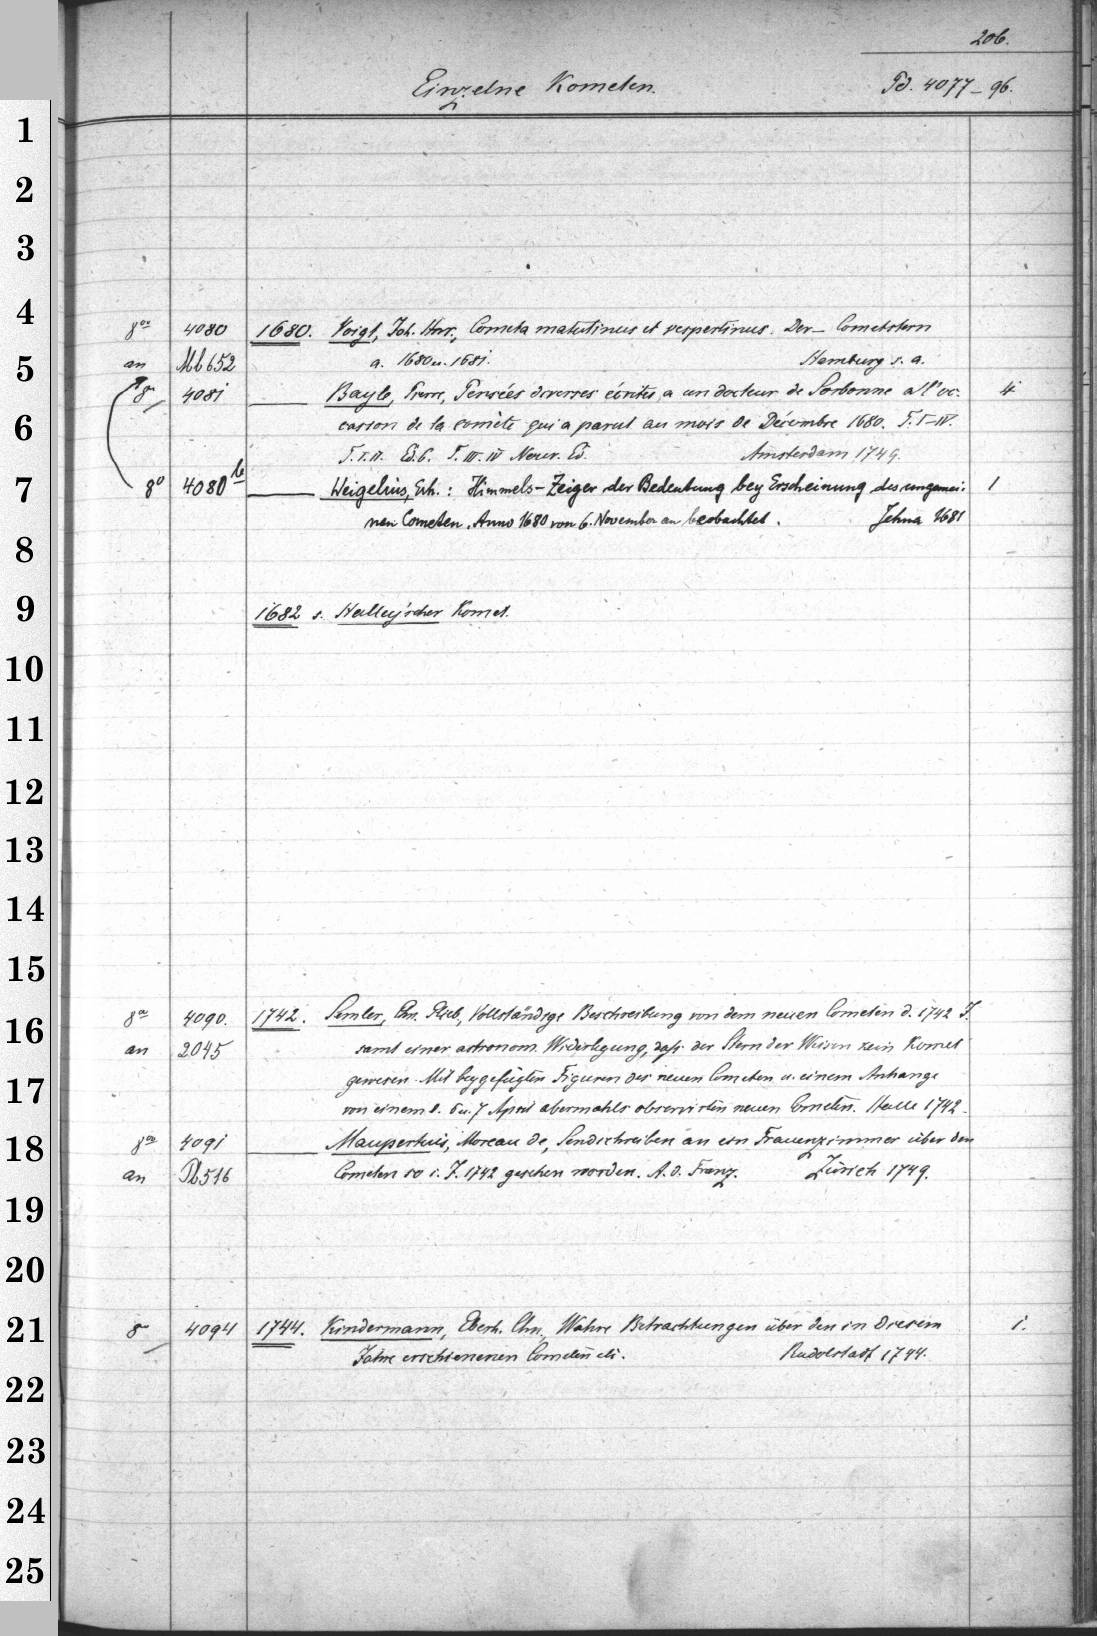 206.
Einzelne Kometen.
Pd. 4077-96.
1
2
3
4
8vo 4080 1680. Voigt, Joh. Hnr., Cometa matutinus et vespertinus. Der - Cometstern
5
an Mb 652 a. 1680 u. 1681. Hamburg s. a.
4081 Bayle, Pierre, Pensées diverses écrites a un docteur de Sorbonne a l'oc- 4
6
casion de la comète qui a parut au mois de Décembre 1680. T. I-IV.
T. I. II. Ed. 6. T. III. IV Nouv. Ed. Amsterdam 1749.
7
8o 4080 b Weigelius, Erh.: Himmels-Zeiger der Bedeutung bey Erscheinung des ungemei- 1
nen Cometen. Anno 1680 von 6. November an beobachtet. Jehna 1681
8
9
1682 s. Halley'scher Komet.
10
11
12
13
14
15
16
4090. 1742. Semler, Chn. Glieb, Vollständige Beschreibung von dem neuen Cometen d. 1742 J.
an 2045 samt einer astronom. Widerlegung, daß der Stern der Weisen kein Komet
17
gewesen. Mit beygefügten Figuren des neuen Cometen u. einem Anhange
von einem d. 6 u. 7 April abermahls observirten neuen Cometen. Halle 1742.
18
4091 Maupertuis, Moreau de, Sendschreiben an ein Frauenzimmer über den
an Pb 516 Cometen so i. J. 1742 gesehen worden. A. d. Franz. Zürich 1749.
19
20
21
8 4094 1744. Kindermann, Eberh. Chn., Wahre Betrachtungen über den in diesem 1.
Jahre erschienenen Cometen etc. Rudolstadt 1744.
22
23
24
25